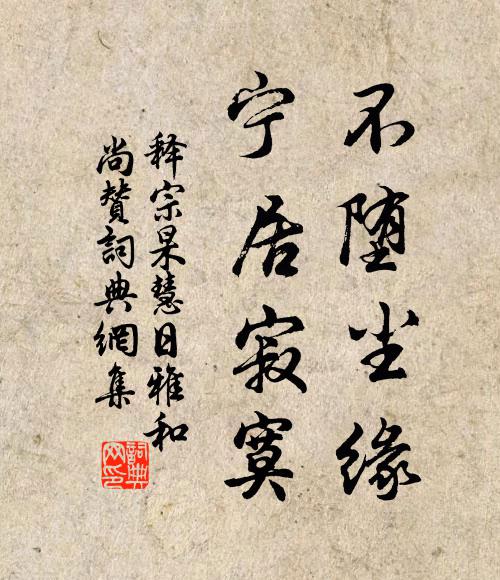 不堕尘缘
宁居寂寞
释宗杲慧日雅和
尚赞词典網集
詞典网印